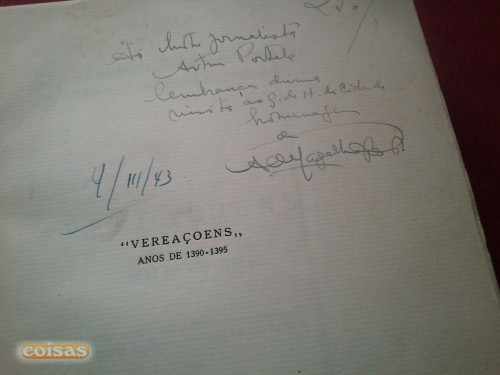 Ao ilustre jornalista
Artur Portela
lembrança duma
visita ao G. de H. da Cidade
homenagem
de
A. de Magalhães
9/III/43
"VEREAÇOENS„
ANOS DE 1390-1395
coisas